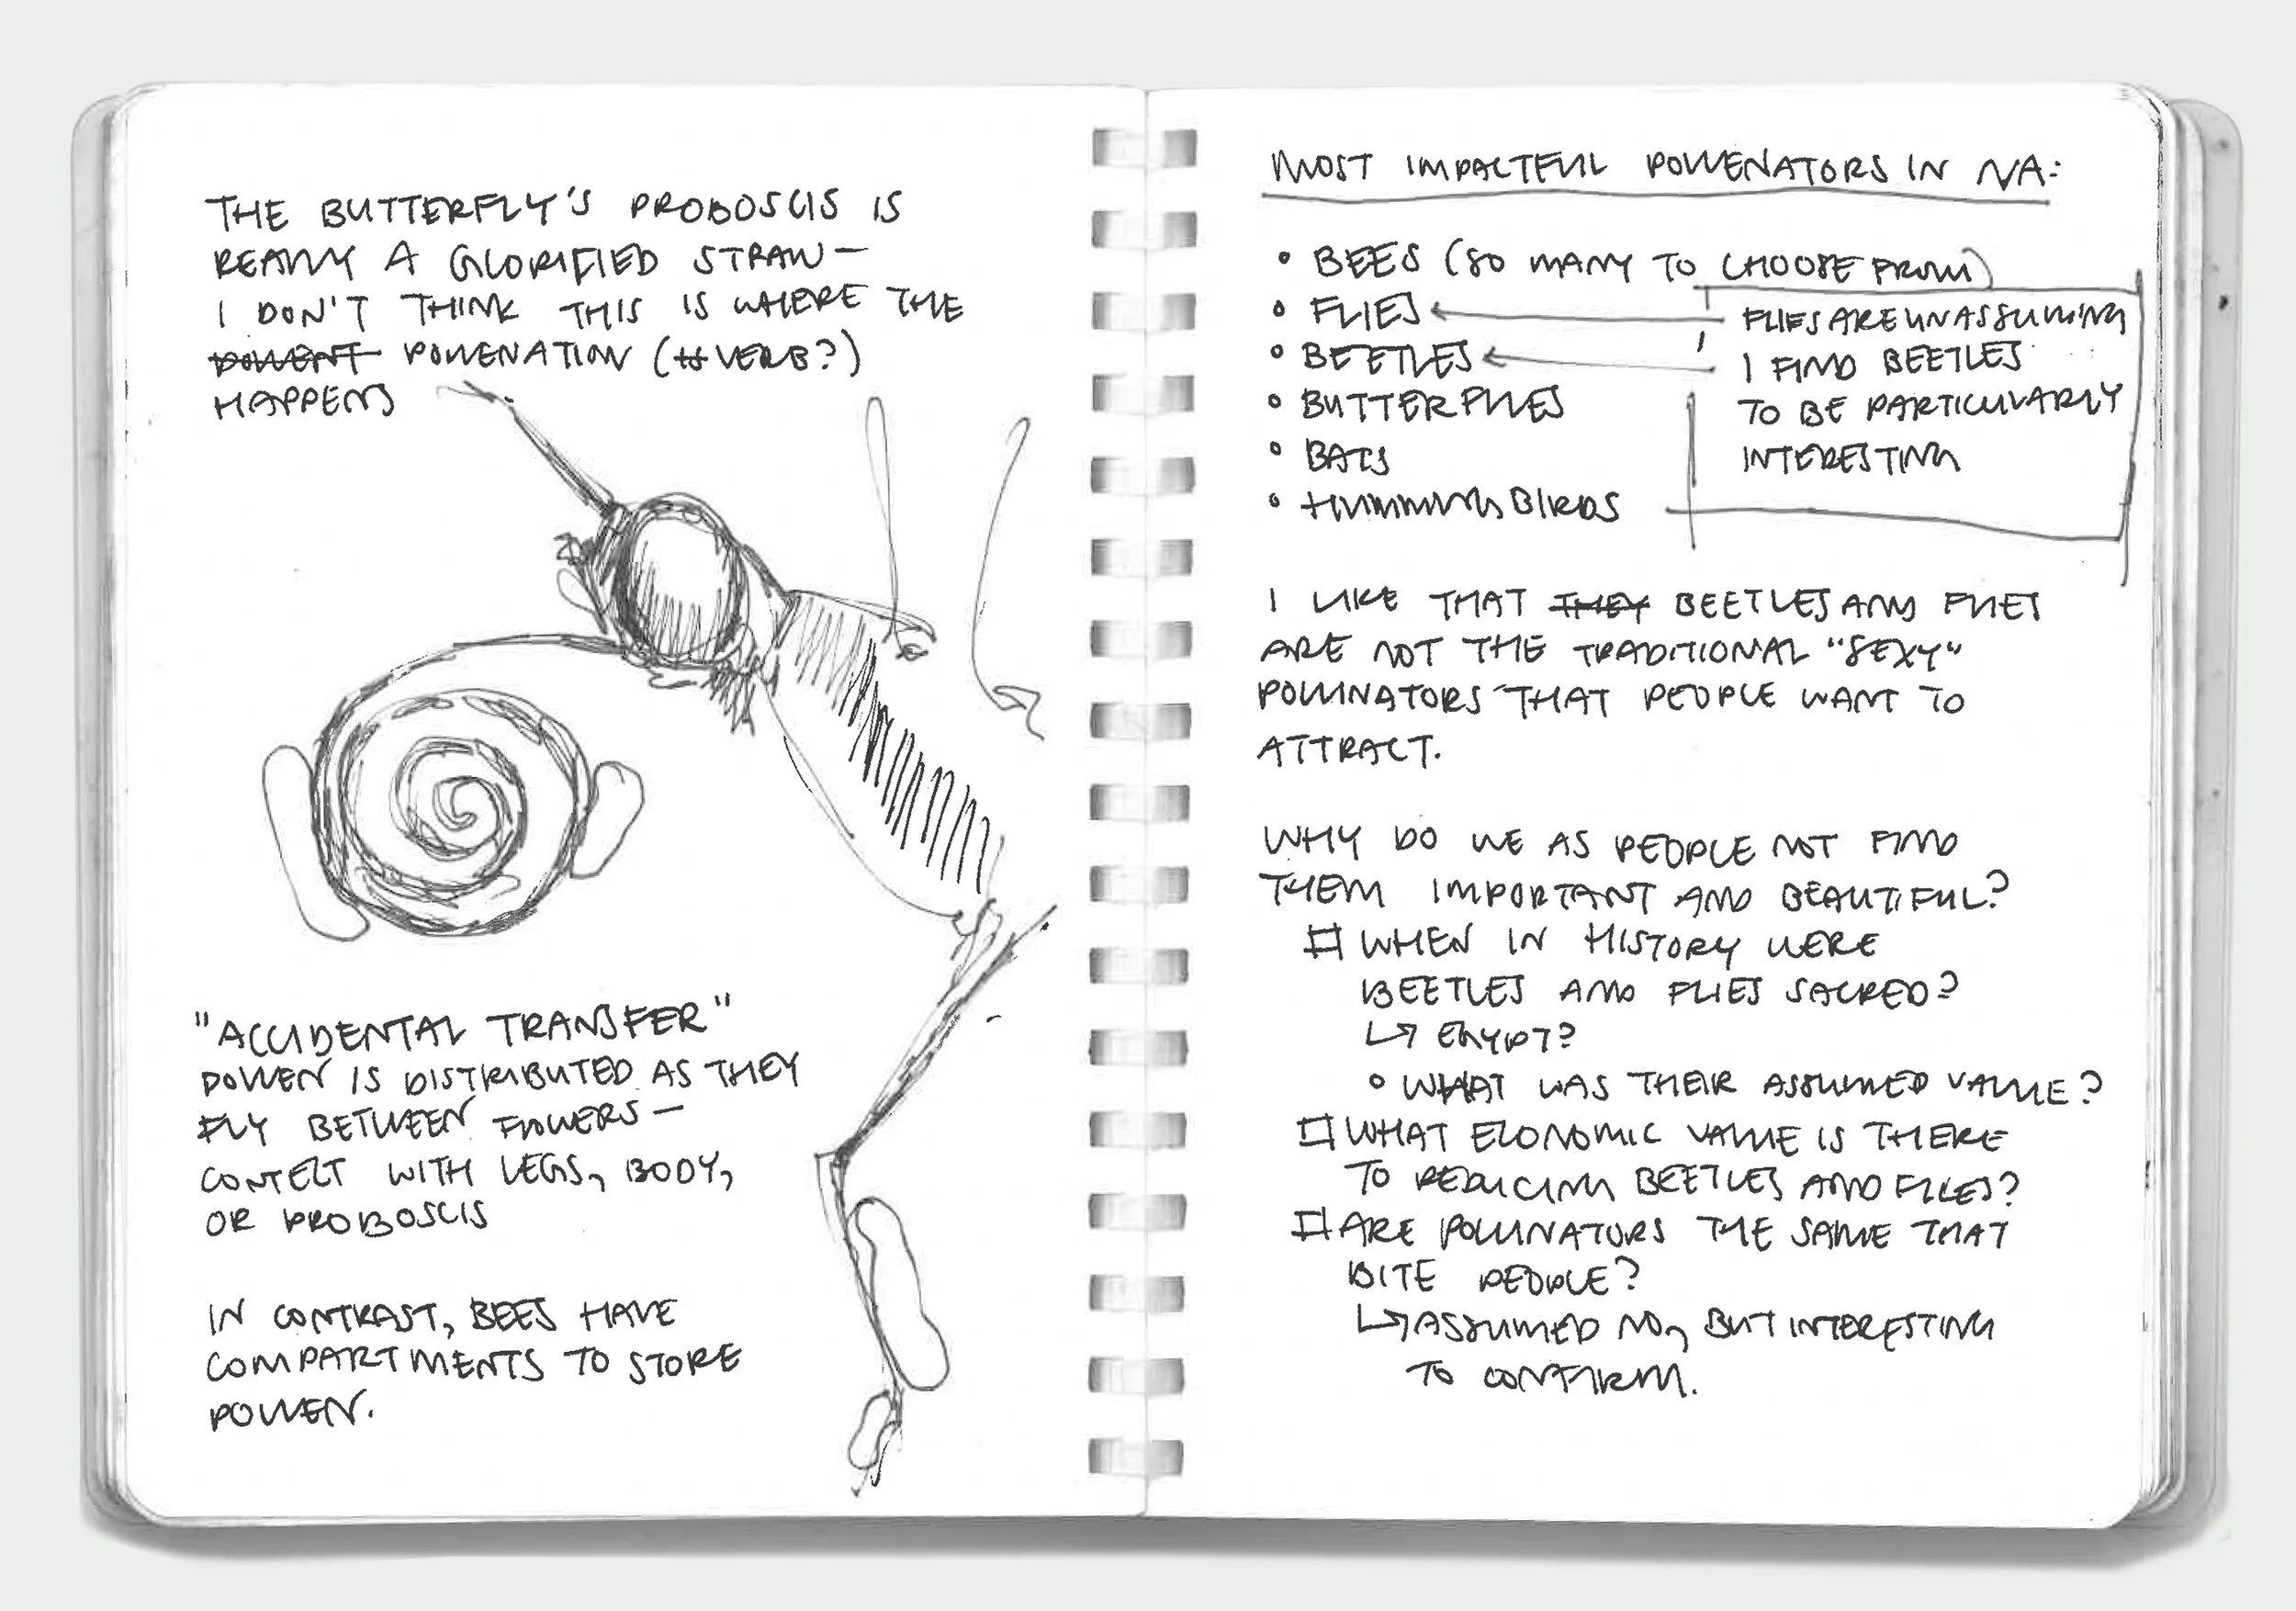 THE BUTTERFLY'S PROBOSCIS IS
REALLY A GLORIFIED STRAW —
I DON'T THINK THIS IS WHERE THE
POLLENATION (VERB?)
HAPPENS
"ACCIDENTAL TRANSFER"
POLLEN IS DISTRIBUTED AS THEY
FLY BETWEEN FLOWERS —
CONTECT WITH LEGS, BODY,
OR PROBOSCIS
IN CONTRAST, BEES HAVE
COMPARTMENTS TO STORE
POLLEN.
MOST IMPACTFUL POLLENATORS IN NA:
• BEES (SO MANY TO CHOOSE FROM)
• FLIES
• BEETLES
• BUTTERFLIES
• BATS
• HUMMINGBIRDS
FLIES ARE UNASSUMING
I FIND BEETLES
TO BE PARTICULARLY
INTERESTING
I LIKE THAT THEY BEETLES AND FLIES
ARE NOT THE TRADITIONAL "SEXY"
POLLINATORS THAT PEOPLE WANT TO
ATTRACT.
WHY DO WE AS PEOPLE NOT FIND
THEM IMPORTANT AND BEAUTIFUL?
□ WHEN IN HISTORY WERE
BEETLES AND FLIES SACRED?
↳ EGYPT?
• WHAT WAS THEIR ASSUMED VALUE?
□ WHAT ECONOMIC VALUE IS THERE
TO REDUCING BEETLES AND FLIES?
□ ARE POLLINATORS THE SAME THAT
BITE PEOPLE?
↳ ASSUMED NO, BUT INTERESTING
TO CONFIRM.